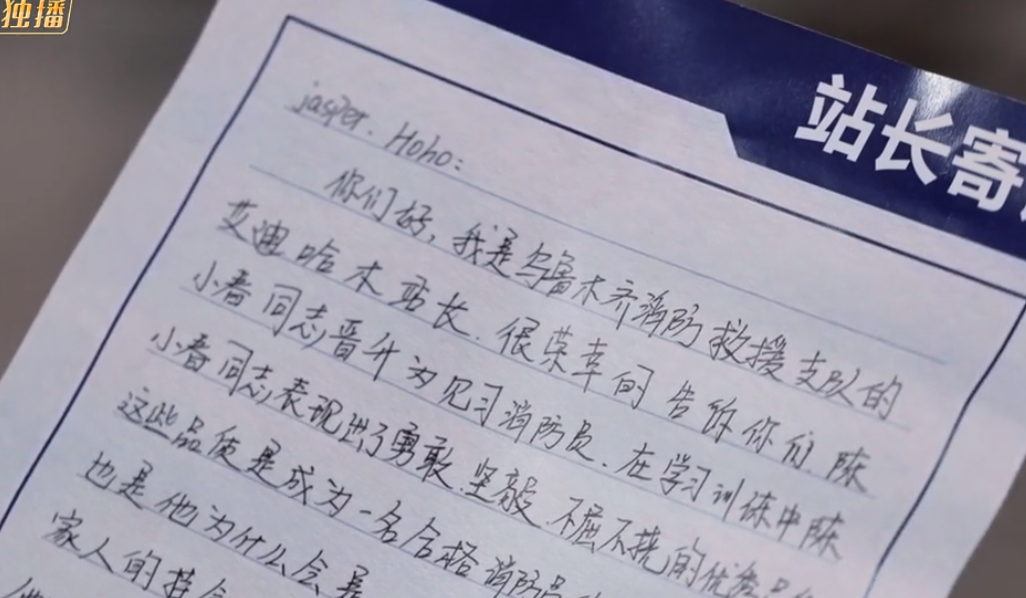 独播
站长寄
jasper. Hoho:
你们好,我是乌鲁木齐消防救援支队的
艾迪哈木站长.很荣幸的告诉你们.陈
小春同志晋升为见习消防员.在学习训练中陈
小春同志表现出了勇敢.坚毅.不屈不挠的优秀品
这些品质是成为一名合格消防员
也是他为什么会是
家人的